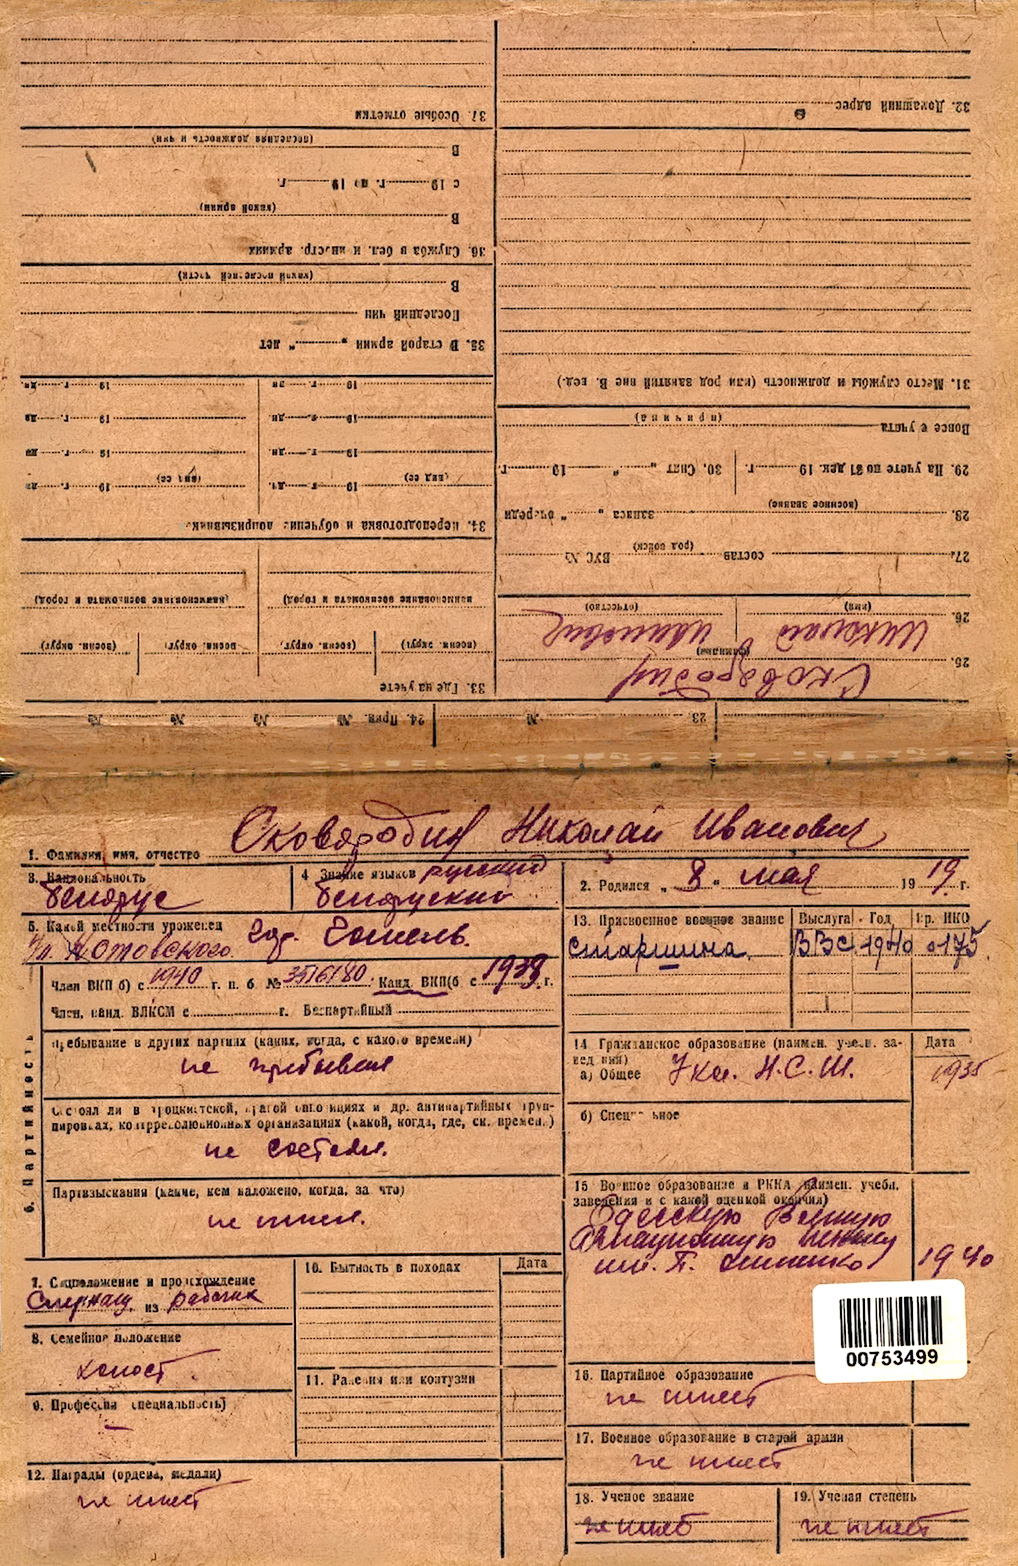 31. Особые отметки
В
(последняя должность и чин)
с 19 г. по 19 г.
В
(какой армии)
36. Служба в бел. и иностр. армиях
В
(какой последней части)
Последний чин
35. В старой армии „ “ лет
19 г. дн
19 г. дн
19 г. дн
19 г. дн.
19 г. дн
19 г. дн.
(вид сб) 19 г. дн
(вид сб) 19 г. дн.
34. Переподготовка и обучение допризывник.
наименование военкомата и город)
наименование военкомата и город)
(воен. округ)
воен. округ)
(воен. округ)
(воен. округ)
33. Где на учете
24. Прик. № № № №
32. Домашний адрес
31. Место службы и должность (или род занятий вне В. вед.)
Вовсе с учета
(причина)
29. На учете по 31 дек. 19 г.
30. Снят „ “ 19 г.
28. запаса „ “ очереди
(военное звание)
27. состав ВУС №
(род войск)
26. Николай Иванович
(имя) (отчество)
25. Сковородин
(фамилия)
23. №
1. Фамилия, имя, отчество Сковородин Николай Иванович
3. Национальность
белорус
4 Знание языков русский
белорусский
2. Родился „ 8 “ мая 1919. г.
5. Какой местности уроженец
Ул. Котовского. Гор. Гомель.
13. Присвоенное военное звание Выслуга Год Пр. НКО
старшина. ВВС 1940 0175.
6. Партийность
Член ВКП б) с 1940 г. п. б. № 3516180. Канд. ВКП(б с 1939 г.
Член, канд. ВЛКСМ с г. Беспартийный
Пребывание в других партиях (каких, когда, с какого времени)
не пребывал
Состоял ли в троцкистской, правой оппозициях и др. антипартийных груп-
пировках, контрреволюционных организациях (какой, когда, где, ск. времен.)
не состоял.
Партвзыскания (какие, кем наложено, когда, за что)
не имел.
14 Гражданское образование (наимен. учебн. за-
ведения) Дата
а) Общее 7 кл. Н.С.Ш. 1935
б) Специальное
15 Военное образование в РККА (наимен. учебн.
заведения и с какой оценкой окончил)
Одесскую Военную
Авиационную школу
им. П. Осипенко 1940
7. Соцположение и происхождение
Служащ. из рабочих
8. Семейное положение
холост.
9. Профессия (специальность)
—
10. Бытность в походах Дата
11. Ранения или контузии
12. Награды (ордена, медали)
не имеет
00753499
16. Партийное образование
не имеет
17. Военное образование в старой армии
не имеет
18. Ученое звание
не имеет
19. Ученая степень
не имеет